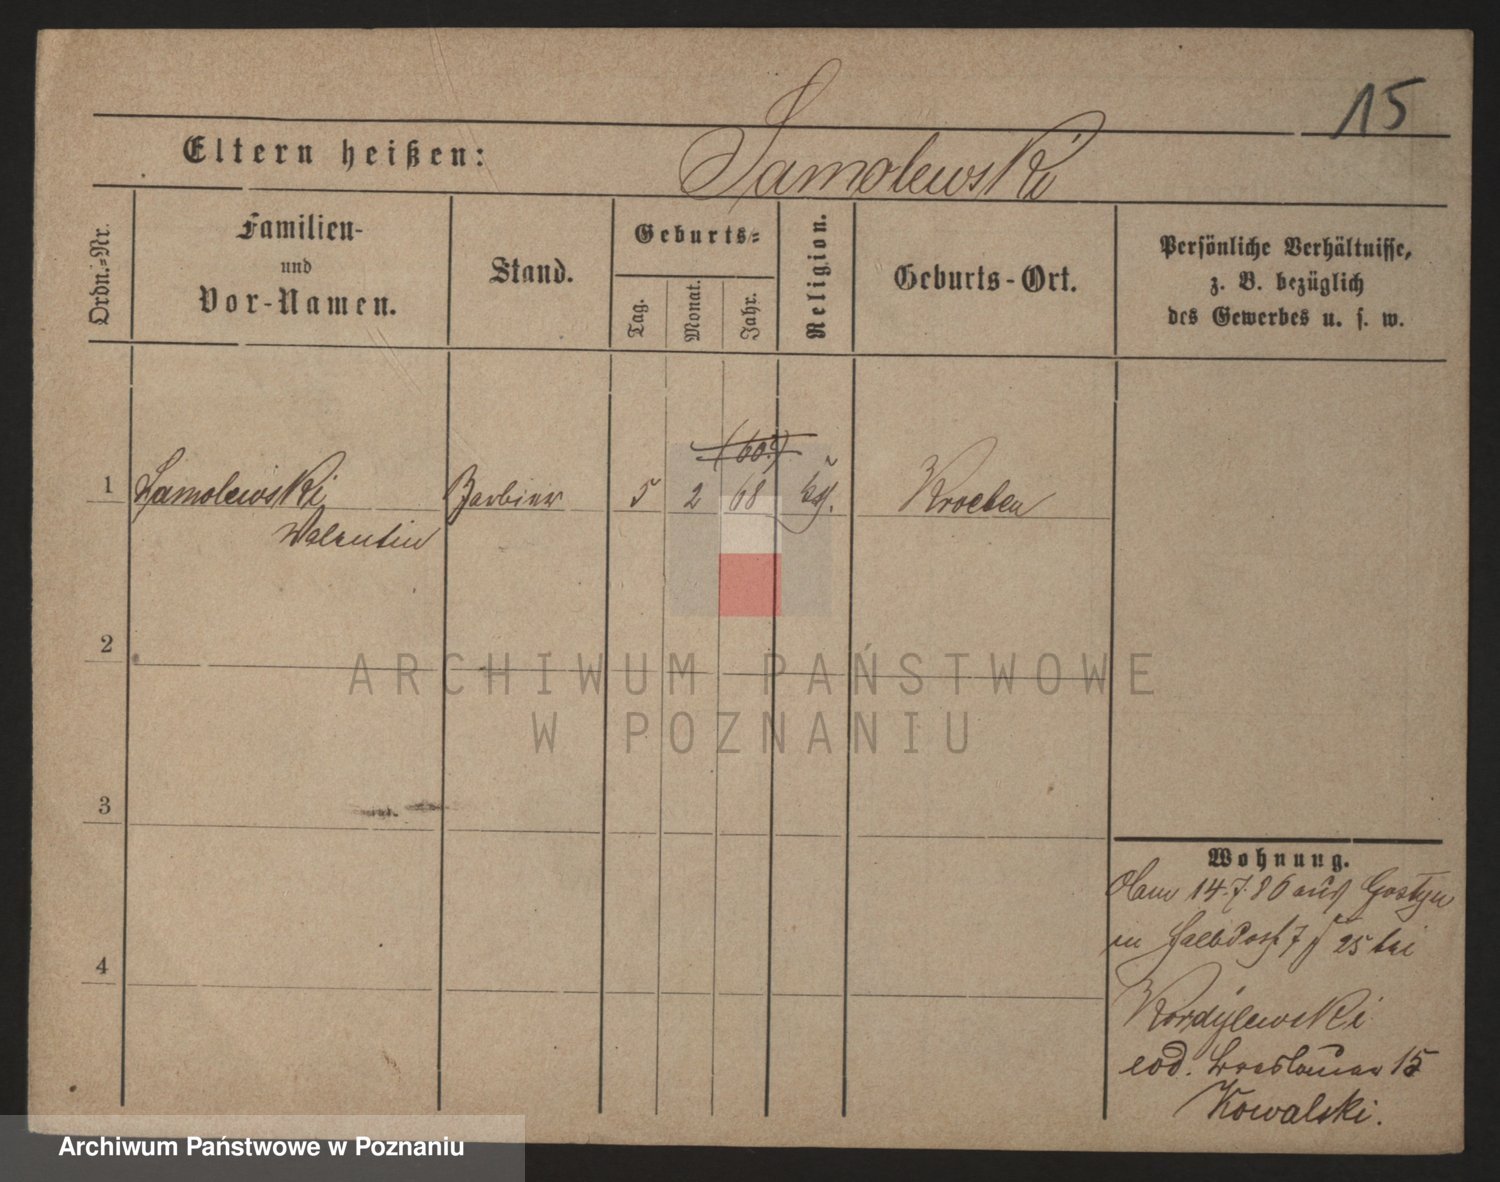 15
Eltern heißen: Samolewski
Ordn.-Nr.
Familien-
und
Vor-Namen.
Stand.
Geburts-
Tag.
Monat.
Jahr.
Religion.
Geburts-Ort.
Persönliche Verhältnisse,
z. B. bezüglich
des Gewerbes u. s. w.
(60?)
1 Samolewski Barbier 5 2 68 kath. Kroeben
Valentin
2
ARCHIWUM PAŃSTWOWE
W POZNANIU
3
4
Wohnung.
14.7.86 aus Gostyn
in Halbdorf 25 bei
Kordylewski
eod. Breslauer 15
Kowalski.
Archiwum Państwowe w Poznaniu